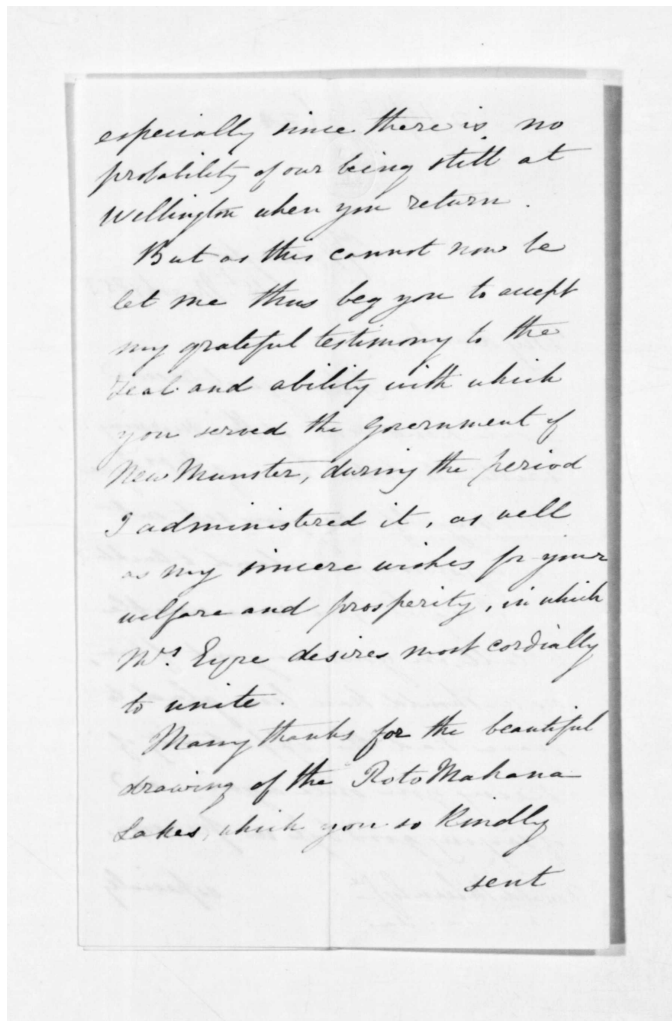 especially since there is no
probability of our being still at
Wellington when you return.
But as this cannot now be
let me thus beg you to accept
my grateful testimony to the
zeal and ability with which
you served the Government of
New Munster, during the period
I administered it, as well
as my sincere wishes for your
welfare and prosperity, in which
Mrs Eyre desires most cordially
to unite.
Many thanks for the beautiful
drawing of the Roto Mahana
Lakes, which you so kindly
sent